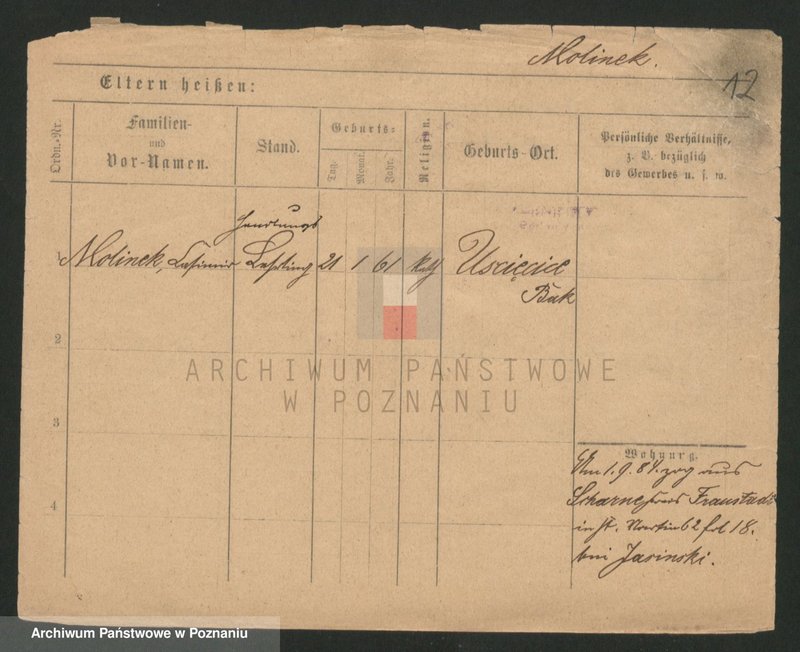 Molinek.
12
Eltern heißen:
Ordn.-Nr.
Familien-
und
Vor-Namen.
Stand.
Geburts-
Tag.
Monat.
Jahr.
Religion.
Geburts-Ort.
Persönliche Verhältnisse,
z. B. bezüglich
des Gewerbes u. s. w.
Handlungs
1 Molinek, Casimir Lehrling 21 1 61 kath Uscięcice
Buk
2
ARCHIWUM PAŃSTWOWE
W POZNANIU
3
4
Wohnung.
Am 1. 9. 84. zog aus
Scharne, Kreis Fraustadt
in St. Martin 62 18.
bei Jasinski.
Archiwum Państwowe w Poznaniu